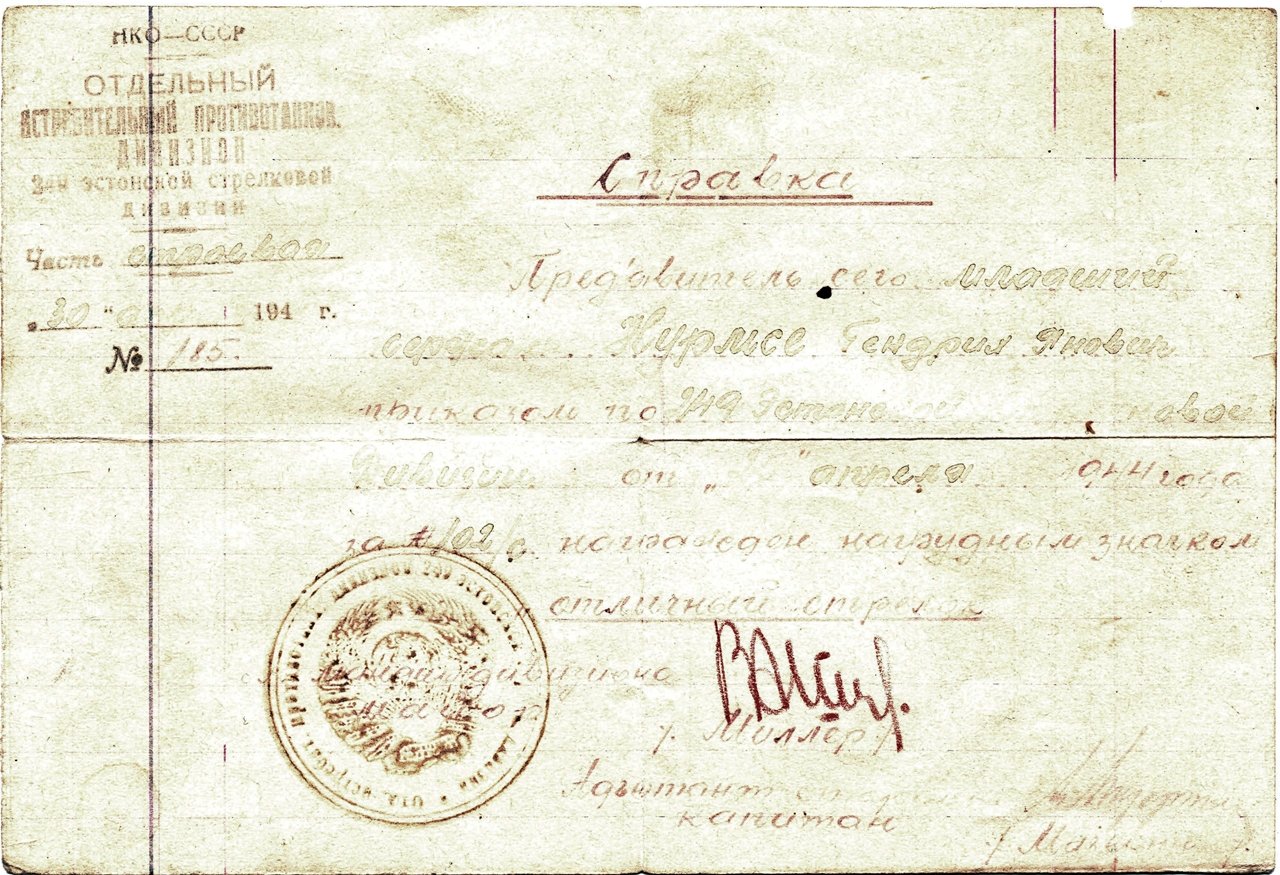 НКО—СССР
ОТДЕЛЬНЫЙ
ИСТРЕБИТЕЛЬНЫЙ ПРОТИВОТАНКОВ.
ДИВИЗИОН
249 эстонской стрелковой
дивизии
Часть строевая
„30" 194 г.
№ 185.
Справка
Пред'явитель сего младший
сержан Нурмсе Гендрих Янович
приказом по 249 Эстонской ковой
Дивизии от „ " апреля 1944 года
за № /02/0 награжден нагрудным значком
отличный стрелок
дивизиона
майор
/. Миллер /
Адъютант
капитан